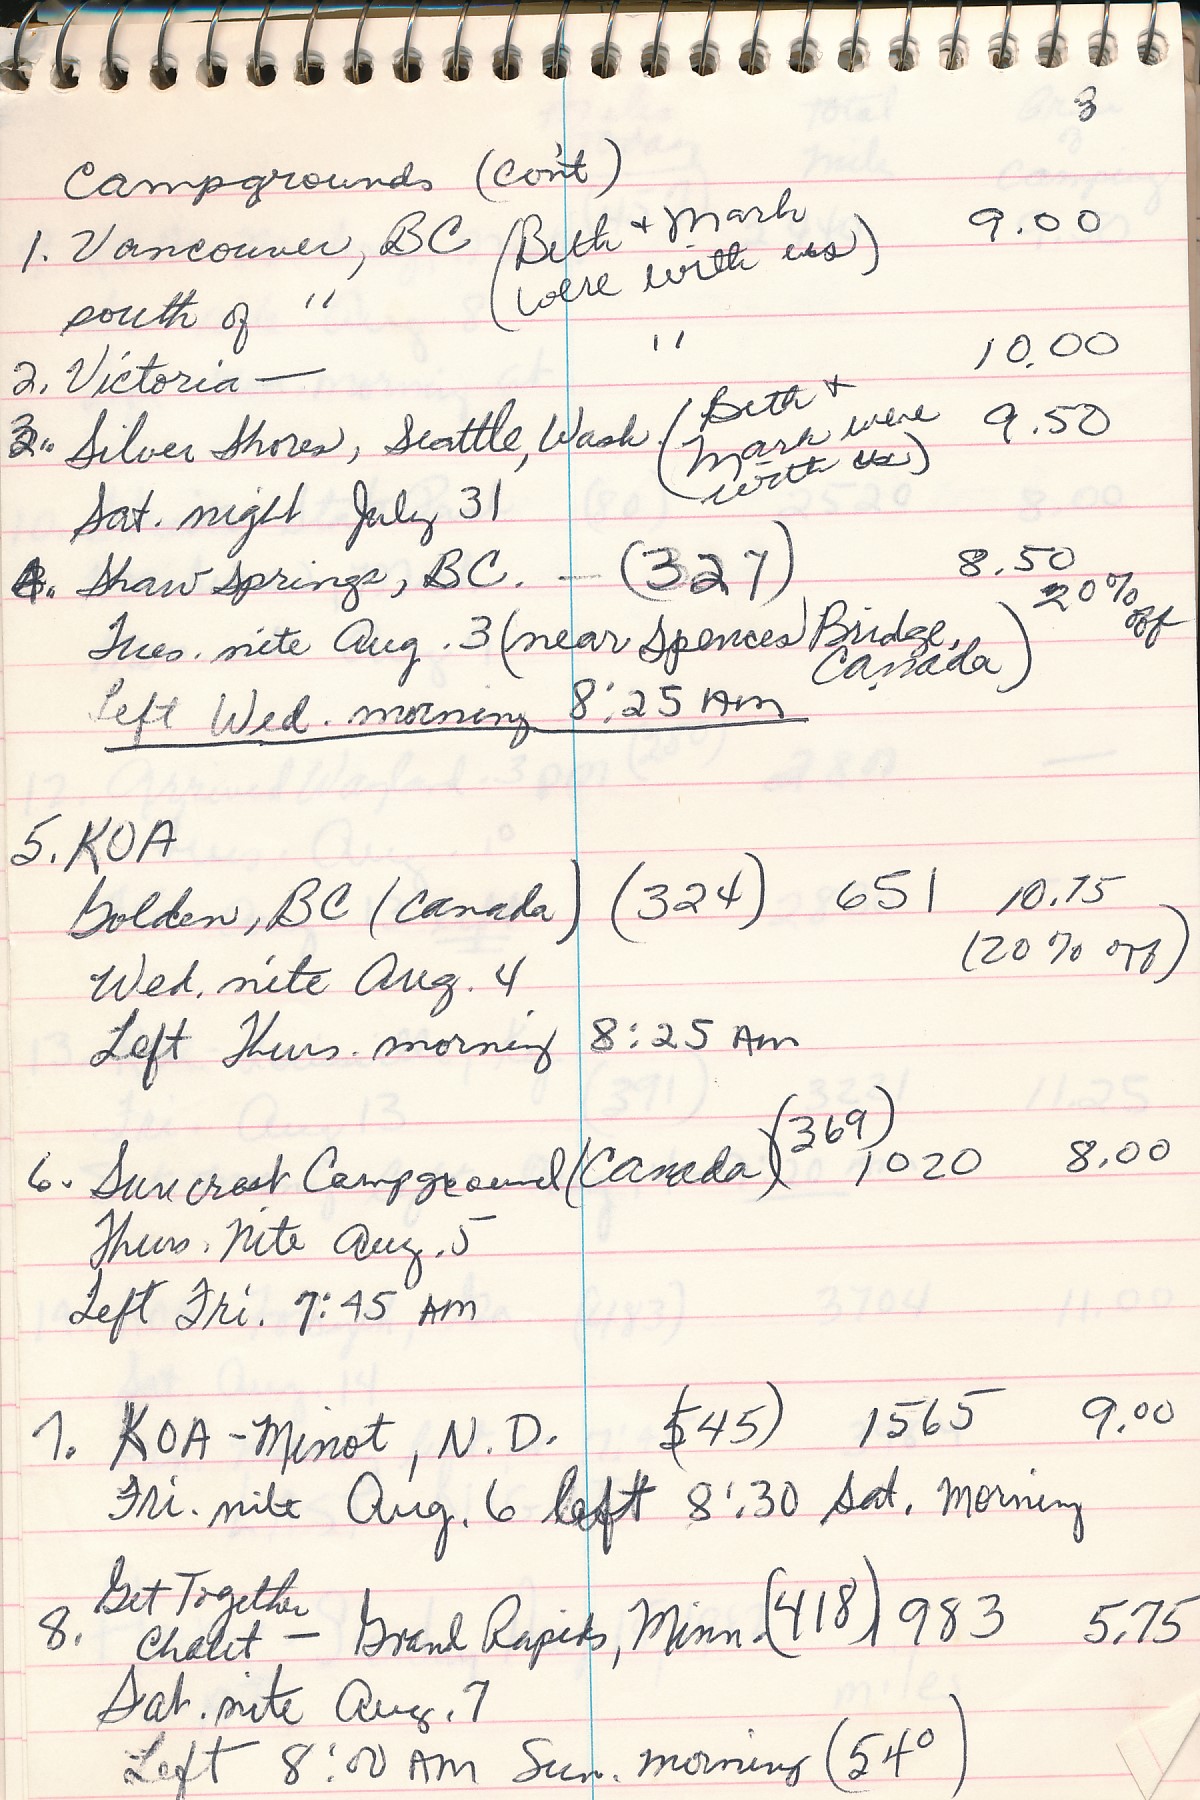 3
Campgrounds (con't)
1. Vancouver, BC (Beth + Mark were with us) 9.00
south of "
2. Victoria — " 10.00
3. Silver Shores, Seattle, Wash. (Beth + Mark were with us) 9.50
Sat. night July 31
4. Shaw Springs, BC. — (327) 8.50
20% off
Tues. nite Aug. 3 (near Spences Bridge, Canada)
Left Wed. morning 8:25 AM
5. KOA
Golden, BC (Canada) (324) 651 10.75
(20% off)
Wed. nite Aug. 4
Left Thurs. morning 8:25 AM
6. Suncrest Campground (Canada) (369) 1020 8.00
Thurs. Nite Aug. 5
Left Fri. 7:45 AM
7. KOA - Minot, N.D. (545) 1565 9.00
Fri. nite Aug. 6 left 8:30 Sat. Morning
8. Get Together
Chalet — Grand Rapids, Minn. (418) 1983 5.75
Sat. nite Aug. 7
Left 8:00 AM Sun. morning (54°)